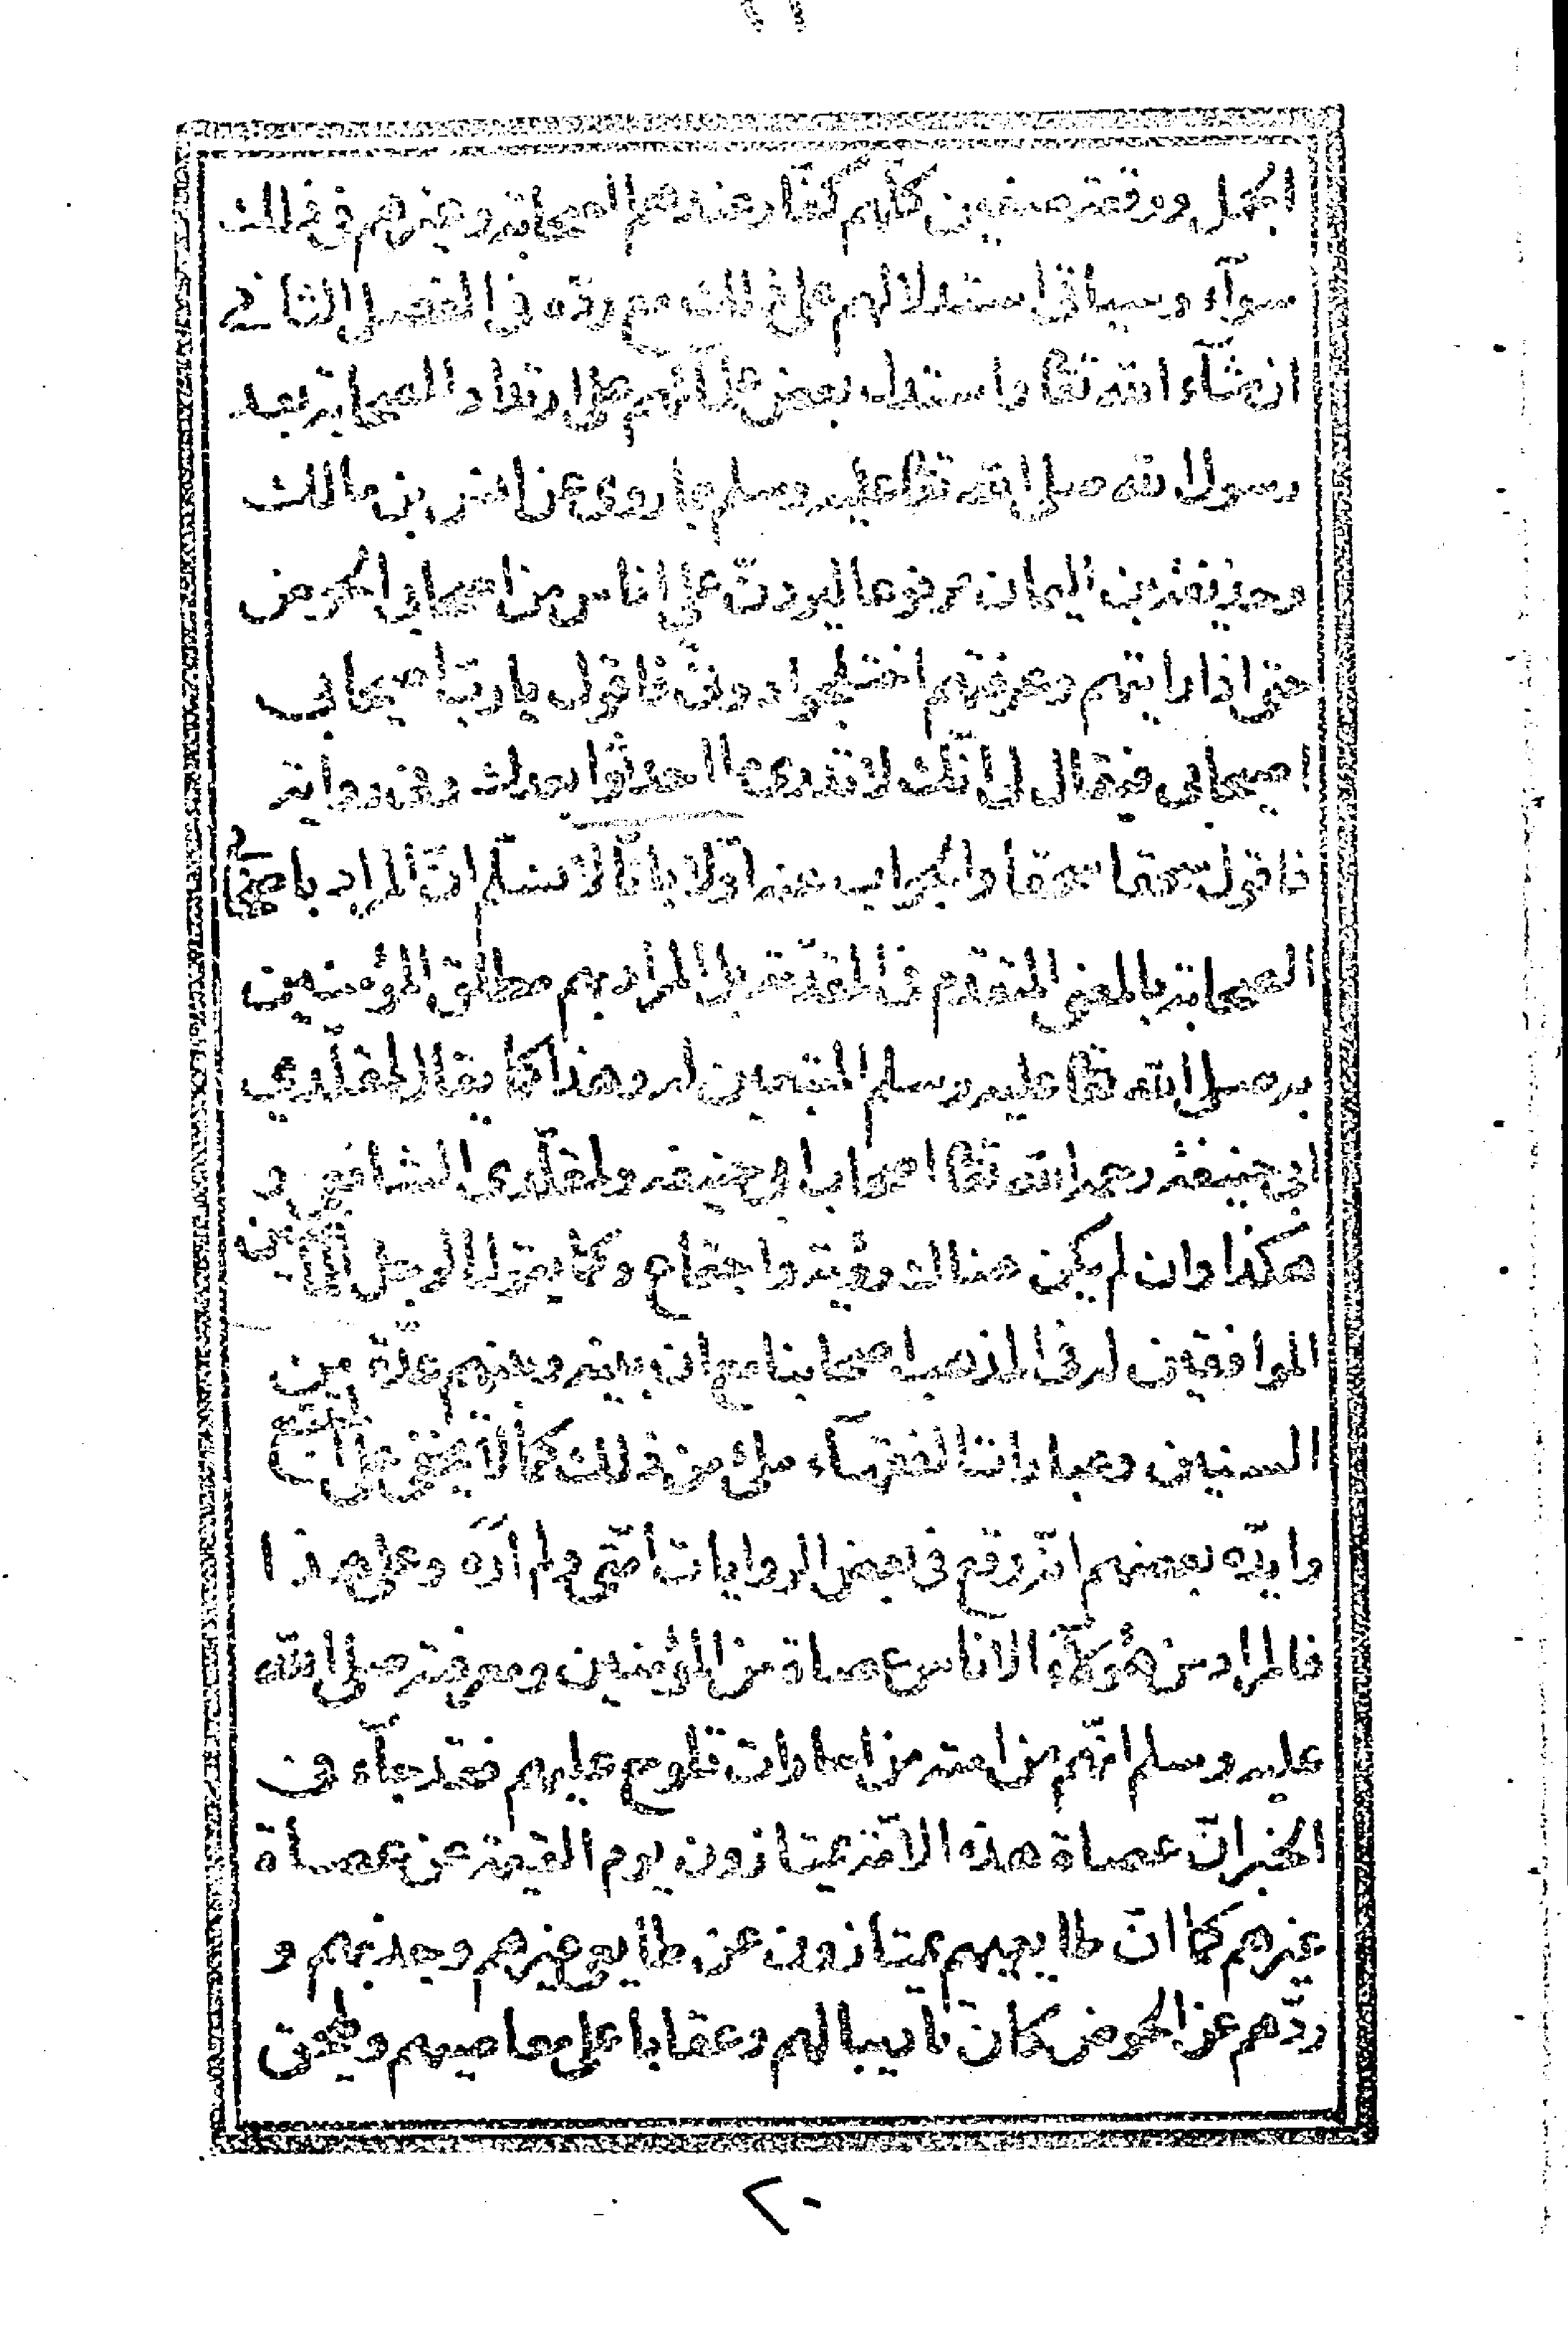 الجمل ووقعة صفين كلّهم كفّار عندهم الصحابة وغيرهم في ذلك
سوآء وسياتي استدلالهم على ذلك مع ردّه في الفصل الثاني
ان شآء الله تعا واستدل بعض علمآئهم على ارتداد الصحابة بعد
رسول الله صلى الله تعا عليه وسلم بما روى عن انس بن مالك
وحذيفة بن اليمان مرفوعا ليردنّ على اناس من اصحابي الحوض
حتى اذا رايتهم وعرفتهم اختلجوا دوني فاقول يا ربّ اصحابي
اصحابي فيقال لي انّك لا تدرى ما احدثوا بعدك وفي رواية
فاقول سحقا سحقا والجواب عنه اوّلا بانّا لا نسلّم انّ المراد باصحابي
الصحابة بالمعنى المتقدّم في المقدّمة بل المراد بهم مطلق المؤمنين
به صلى الله تعا عليه وسلم المتبعين له وهذا كما يقال لمقلّدي
ابي حنيفة رحمه الله تعا اصحاب ابي حنيفة ولمقلّدى الشافعي
هكذا وان لم يكن هناك رؤية واجتماع وكما يقول الرجل
الموافقين له في المذهب اصحابنا مع ان بينه وبينهم عدّة من
السنين وعبارات الفقهآء ملئ من ذلك كما لا يخفى على
وايّده بعضهم انّه وقع في بعض الروايات امّتي ولم اَرَه وعلى هذا
فالمراد من هؤلآء الاناس عصاة من المؤمنين ومعرفته صلى الله
عليه وسلم انّهم من امته من امارات تلوح عليهم فقد جآء في
الخبر انّ عصاة هذه الامّة يمتازون يوم القيمة عن عصاة
غيرهم كما انّ طايعيهم يمتازون عن طايعي غيرهم وجذبهم و
ردّهم عن الحوض كان تأديبا لهم وعقابا على معاصيهم
٢٠